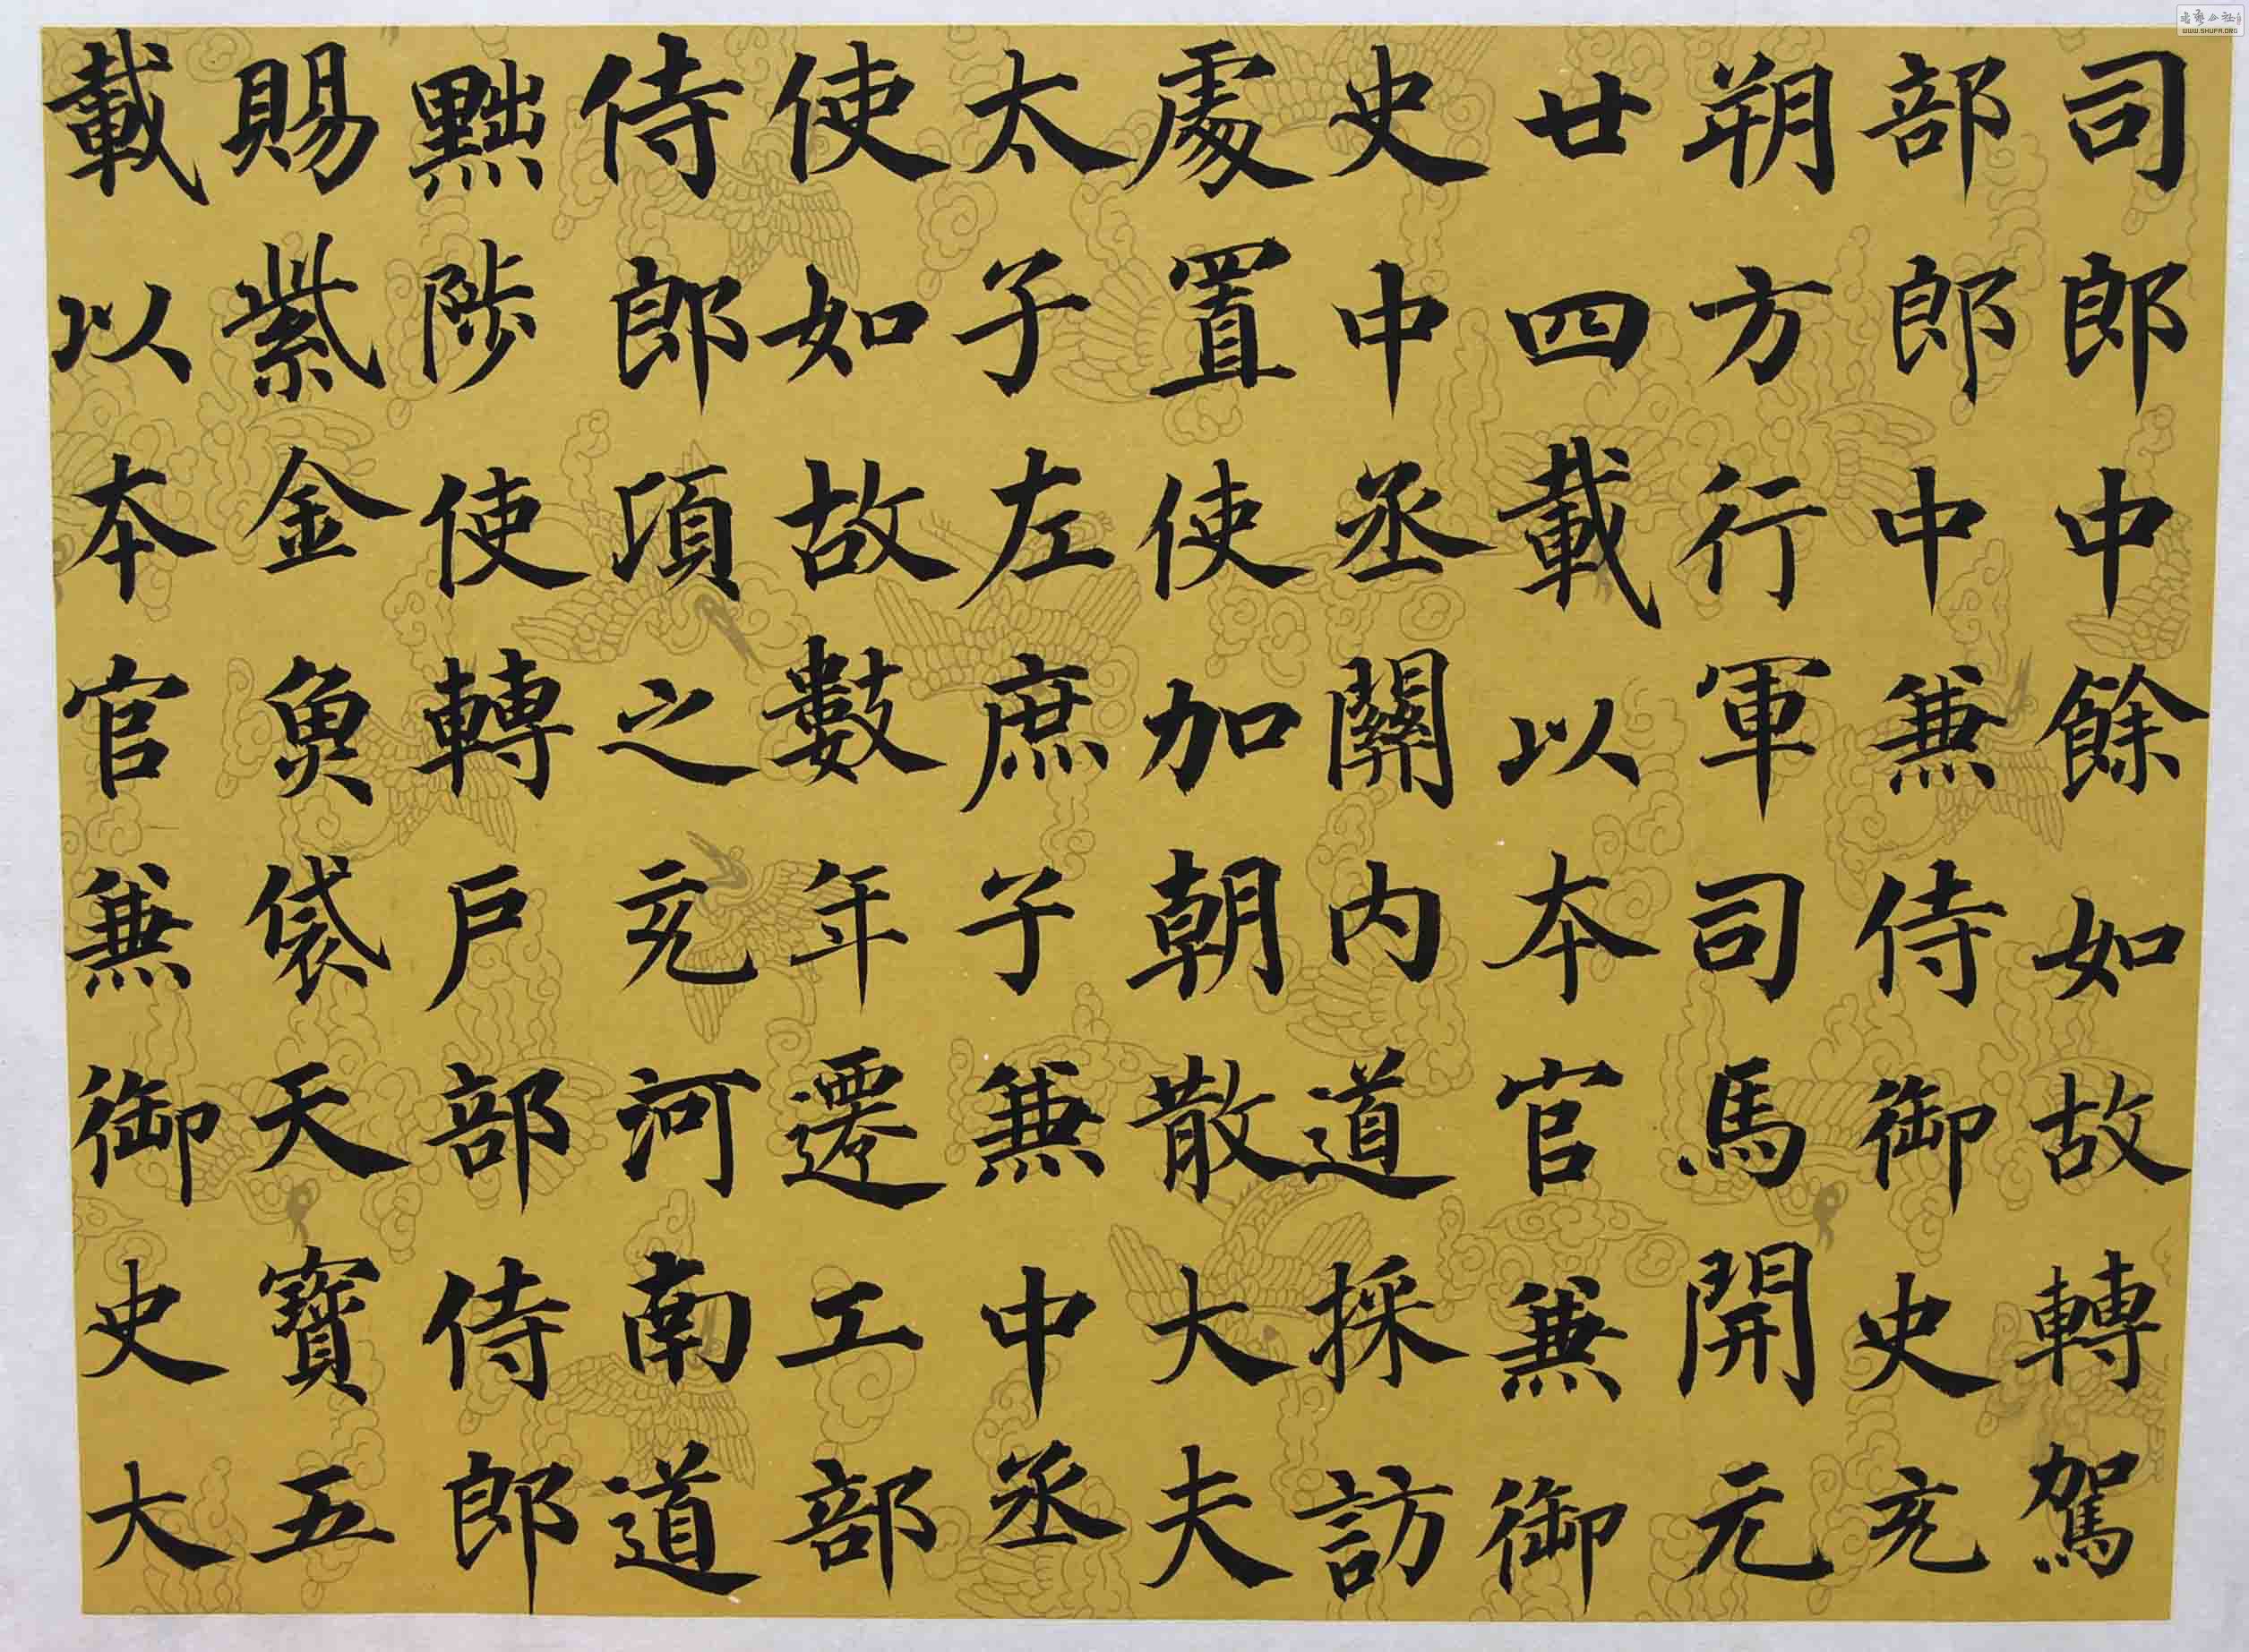 司郎中餘如故轉駕
部郎中兼侍御史充
朔方行軍司馬開元
廿四載以本官兼御
史中丞關內道採訪
處置使加朝散大夫
太子左庶子兼中丞
使如故數年遷工部
侍郎頃之充河南道
黜陟使轉戶部侍郎
賜紫金魚袋天寶五
載以本官兼御史大
WWW.SHUFA.ORG